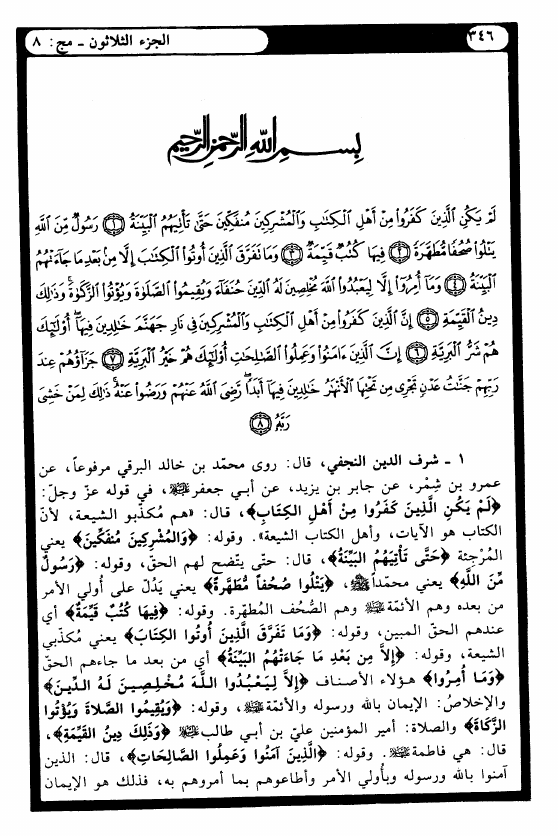 الجزء الثلاثون ـ مج: ٨
٣٤٦
بِسْمِ اللهِ الرَّحْمٰنِ الرَّحِيمِ
لَمْ يَكُنِ الَّذِينَ كَفَرُوا مِنْ أَهْلِ الْكِتَابِ وَالْمُشْرِكِينَ مُنفَكِّينَ حَتَّى تَأْتِيَهُمُ الْبَيِّنَةُ ﴿١﴾ رَسُولٌ مِّنَ اللَّهِ
يَتْلُوا صُحُفًا مُّطَهَّرَةً ﴿٢﴾ فِيهَا كُتُبٌ قَيِّمَةٌ ﴿٣﴾ وَمَا تَفَرَّقَ الَّذِينَ أُوتُوا الْكِتَابَ إِلَّا مِن بَعْدِ مَا جَاءَتْهُمُ
الْبَيِّنَةُ ﴿٤﴾ وَمَا أُمِرُوا إِلَّا لِيَعْبُدُوا اللَّهَ مُخْلِصِينَ لَهُ الدِّينَ حُنَفَاءَ وَيُقِيمُوا الصَّلَاةَ وَيُؤْتُوا الزَّكَاةَ وَذَلِكَ
دِينُ الْقَيِّمَةِ ﴿٥﴾ إِنَّ الَّذِينَ كَفَرُوا مِنْ أَهْلِ الْكِتَابِ وَالْمُشْرِكِينَ فِي نَارِ جَهَنَّمَ خَالِدِينَ فِيهَا أُولَئِكَ
هُمْ شَرُّ الْبَرِيَّةِ ﴿٦﴾ إِنَّ الَّذِينَ ءَامَنُوا وَعَمِلُوا الصَّالِحَاتِ أُولَئِكَ هُمْ خَيْرُ الْبَرِيَّةِ ﴿٧﴾ جَزَاؤُهُمْ عِندَ
رَبِّهِمْ جَنَّاتُ عَدْنٍ تَجْرِي مِن تَحْتِهَا الْأَنْهَارُ خَالِدِينَ فِيهَا أَبَدًا رَّضِيَ اللَّهُ عَنْهُمْ وَرَضُوا عَنْهُ ذَلِكَ لِمَنْ خَشِيَ
رَبَّهُ ﴿٨﴾
١ ـ شرف الدين النجفي، قال: روى محمّد بن خالد البرقي مرفوعاً، عن
عمرو بن شِمْر، عن جابر بن يزيد، عن أبي جعفر عليه السلام، في قوله عزّ وجلّ:
﴿لَمْ يَكُنِ الَّذِينَ كَفَرُوا مِنْ أَهْلِ الْكِتَابِ﴾، قال: «هم مكذّبو الشيعة، لأنّ
الكتاب هو الآيات، وأهل الكتاب الشيعة». وقوله: ﴿وَالْمُشْرِكِينَ مُنفَكِّينَ﴾ يعني
المُرْجئة ﴿حَتَّى تَأْتِيَهُمُ الْبَيِّنَةُ﴾، قال: حتّى يتّضح لهم الحقّ، وقوله: ﴿رَسُولٌ
مِّنَ اللَّهِ﴾ يعني محمّداً ﷺ، ﴿يَتْلُوا صُحُفاً مُّطَهَّرَةً﴾ يعني يَدُلّ على أُولي الأمر
من بعده وهم الأئمّة عليهم السلام وهم الصُّحُف المطهّرة. وقوله: ﴿فِيهَا كُتُبٌ قَيِّمَةٌ﴾ أي
عندهم الحقّ المبين، وقوله: ﴿وَمَا تَفَرَّقَ الَّذِينَ أُوتُوا الْكِتَابَ﴾ يعني مكذّبي
الشيعة، وقوله: ﴿إِلاَّ مِن بَعْدِ مَا جَاءَتْهُمُ الْبَيِّنَةُ﴾ أي من بعد ما جاءهم الحقّ
﴿وَمَا أُمِرُوا﴾ هؤلاء الأصناف ﴿إِلاَّ لِيَعْبُدُوا اللَّهَ مُخْلِصِينَ لَهُ الدِّينَ﴾
والإخلاصُ: الإيمان بالله ورسوله والأئمّة عليهم السلام، وقوله: ﴿وَيُقِيمُوا الصَّلاةَ وَيُؤْتُوا
الزَّكَاةَ﴾ والصلاة: أمير المؤمنين عليّ بن أبي طالب عليه السلام ﴿وَذَلِكَ دِينُ الْقَيِّمَةِ﴾،
قال: هي فاطمة عليها السلام. وقوله: ﴿الَّذِينَ آمَنُوا وَعَمِلُوا الصَّالِحَاتِ﴾، قال: الذين
آمنوا بالله ورسوله وبأُولي الأمر وأطاعوهم بما أمروهم به، فذلك هو الإيمان